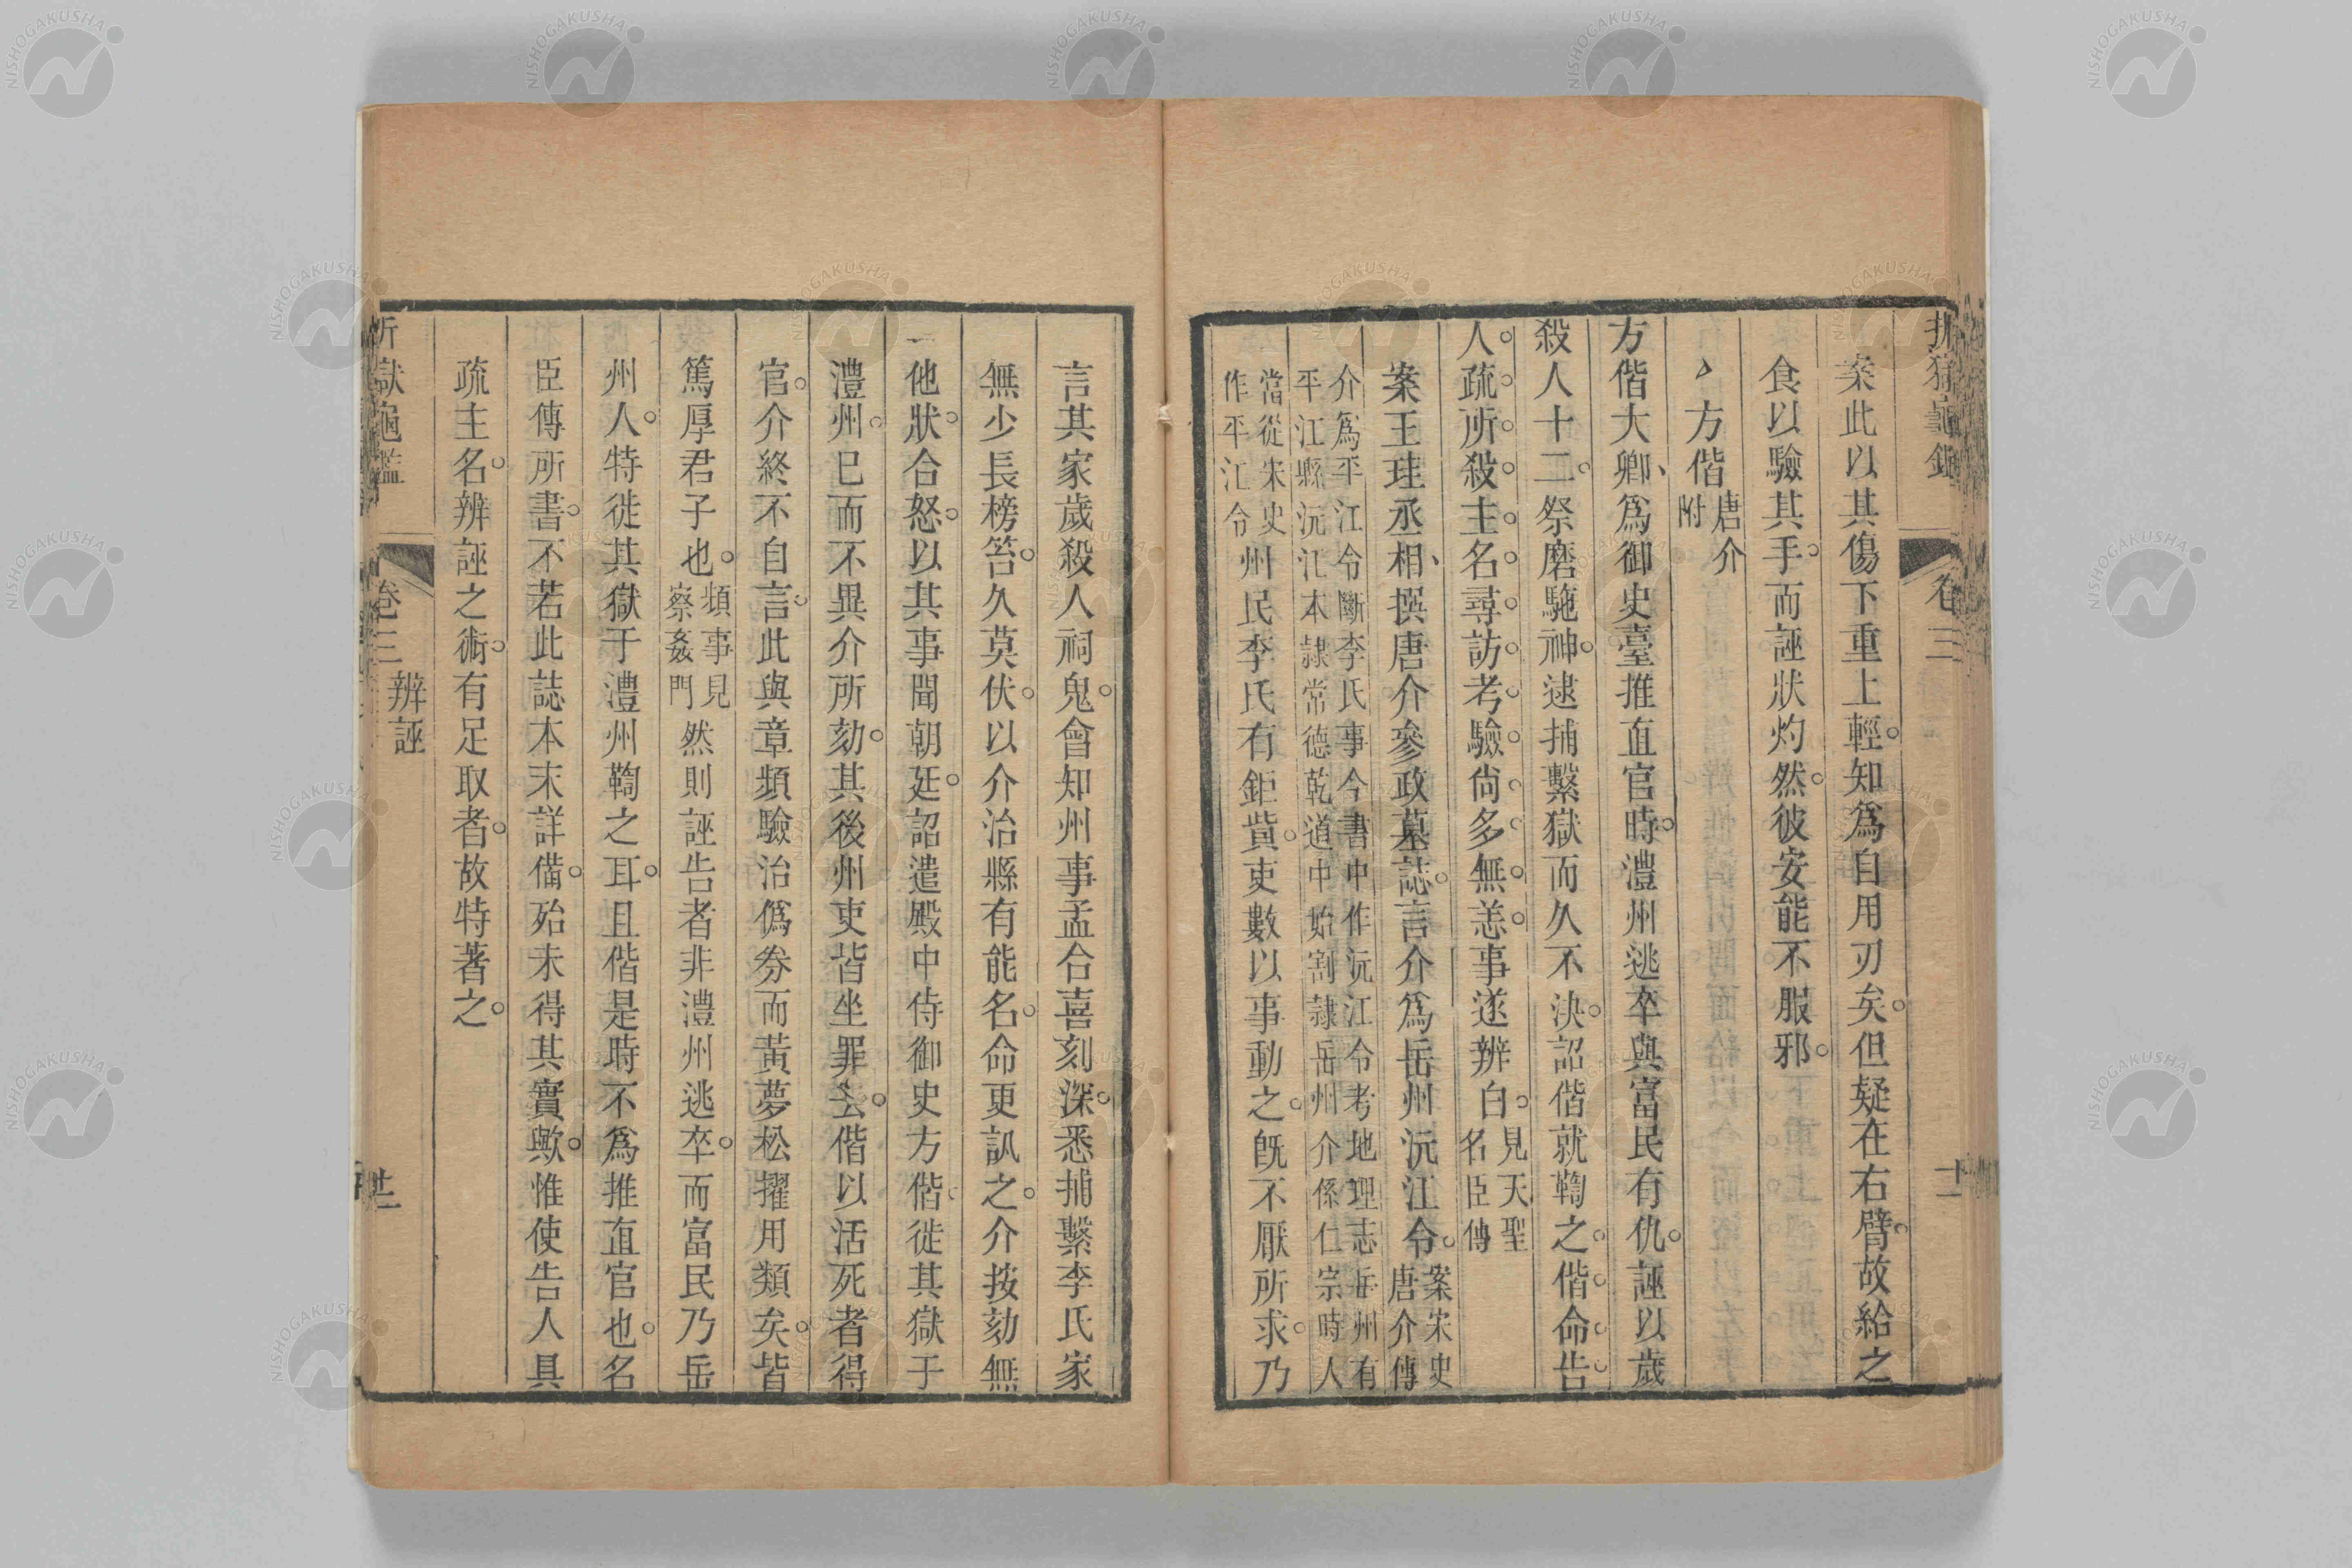 折獄龜鑑 卷三 十一
案此以其傷下重上輕知爲自用刃矣但疑在右臂故給之
食以驗其手而誣狀灼然彼安能不服邪
方偕 唐介附
方偕大卿爲御史臺推直官時澧州逃卒與富民有仇誣以歲
殺人十二祭磨駞神逮捕繫獄而久不決詔偕就鞫之偕命告
人疏所殺主名尋訪考驗尙多無恙事遂辨白 見天聖名臣傳
案王珪丞相撰唐介參政墓誌言介爲岳州沅江令 案宋史唐介傳
介爲平江令斷李氏事今書中作沅江令考地理志岳州有
平江縣沅江本隷常德乾道中始割隷岳州介係仁宗時人
當從宋史作平江令 州民李氏有鉅貲吏數以事動之旣不厭所求乃
言其家歲殺人祠鬼會知州事孟合喜刻深悉捕繫李氏家
無少長榜笞久莫伏以介治縣有能名命更訊之介按劾無
他狀合怒以其事聞朝廷詔遣殿中侍御史方偕徙其獄于
澧州已而不異介所劾其後州吏皆坐罪去偕以活死者得
官介終不自言此與章頻驗治僞券而黃夢松擢用類矣皆
篤厚君子也 頻事見察姦門 然則誣告者非澧州逃卒而富民乃岳
州人特徙其獄于澧州鞫之耳且偕是時不爲推直官也名
臣傳所書不若此誌本末詳備殆未得其實歟惟使告人具
疏主名辨誣之術有足取者故特著之
折獄龜鑑 卷三 辨誣 廿二
NISHOGAKUSHA